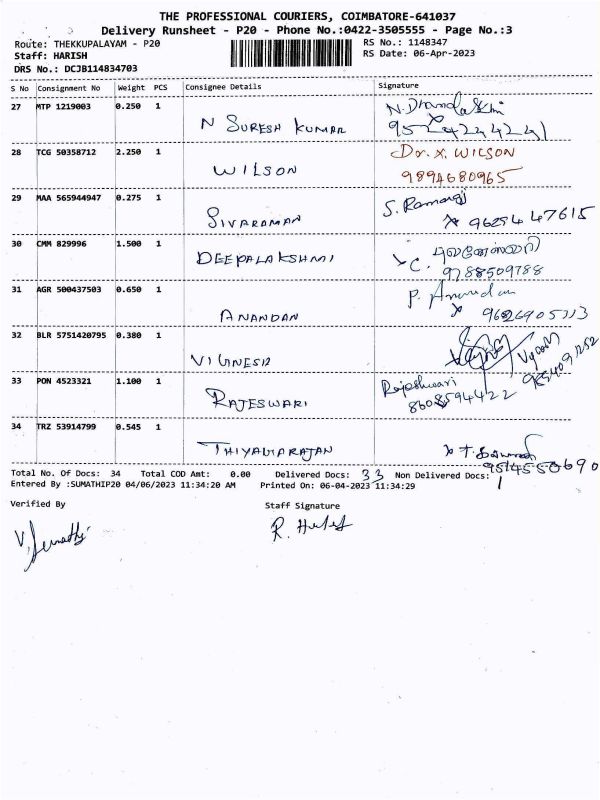 THE PROFESSIONAL COURIERS, COIMBATORE-641037
Delivery Runsheet - P20 - Phone No.:0422-3505555 - Page No.:3
Route: THEKKUPALAYAM - P20 RS No.: 1148347
Staff: HARISH RS Date: 06-Apr-2023
DRS No.: DCJB114834703
S No Consignment No Weight PCS Consignee Details Signature
27 MTP 1219003 0.250 1
N SURESH KUMAR
28 TCG 50358712 2.250 1 Dr. X. WILSON
WILSON 9894680965
29 MAA 565944947 0.275 1 S. Ramanji
SIVARAMAN 9629447615
30 CMM 829996 1.500 1 C.
DEEPALAKSHMI 9788509788
31 AGR 500437503 0.650 1 P. Anandan
ANANDAN 9626905113
32 BLR 5751420795 0.380 1
VIGNESH
33 PON 4523321 1.100 1 Rajeshwari
RAJESWARI 8608594422
34 TRZ 53914799 0.545 1
THIYAGARAJAN 9514550690
Total No. Of Docs: 34 Total COD Amt: 0.00 Delivered Docs: 33 Non Delivered Docs: 1
Entered By :SUMATHIP20 04/06/2023 11:34:20 AM Printed On: 06-04-2023 11:34:29
Verified By Staff Signature
V. Sumathi R.